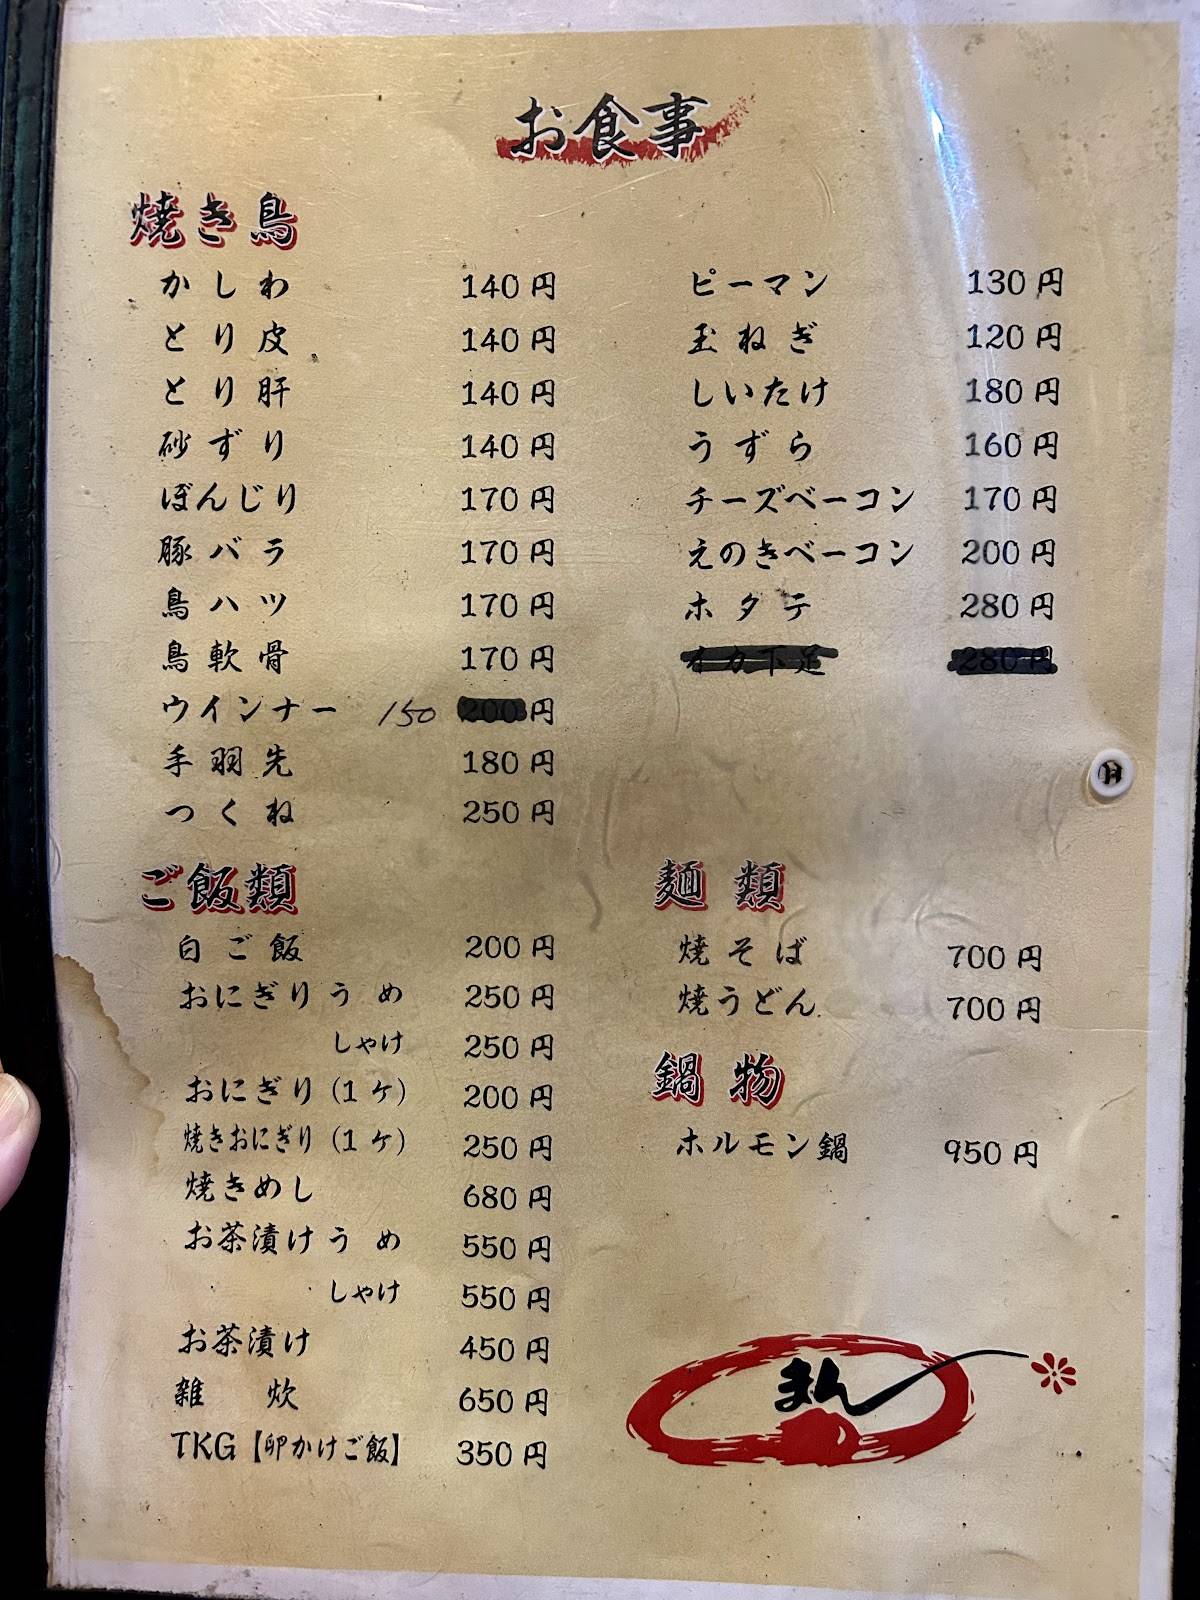 お食事
焼き鳥
かしわ 140円
とり皮 140円
とり肝 140円
砂ずり 140円
ぼんじり 170円
豚バラ 170円
鳥ハツ 170円
鳥軟骨 170円
ウインナー 150 200円
手羽先 180円
つくね 250円
ピーマン 130円
玉ねぎ 120円
しいたけ 180円
うずら 160円
チーズベーコン 170円
えのきベーコン 200円
ホタテ 280円
イカ下足 280円
ご飯類
白ご飯 200円
おにぎりうめ 250円
しゃけ 250円
おにぎり(1ヶ) 200円
焼きおにぎり(1ヶ) 250円
焼きめし 680円
お茶漬けうめ 550円
しゃけ 550円
お茶漬け 450円
雑炊 650円
TKG【卵かけご飯】 350円
麺類
焼そば 700円
焼うどん 700円
鍋物
ホルモン鍋 950円
まん